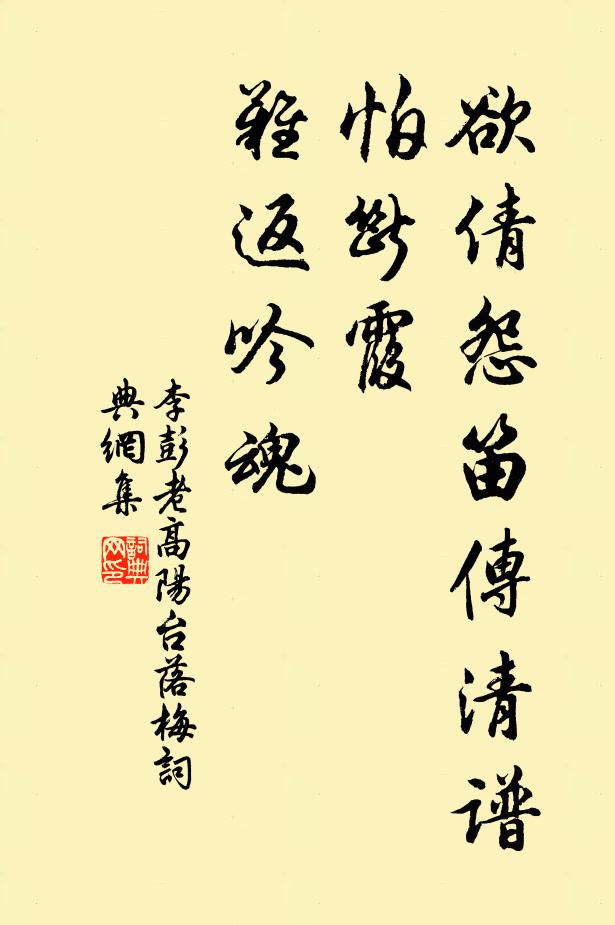 欲倩怨笛傳清譜
怕斷霞
難返吟魂
李彭老高陽台落梅詞
典網集
詞典
网印